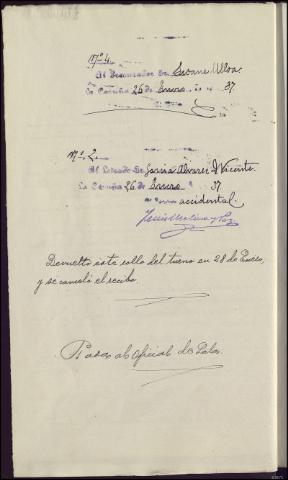 Nº 4.
Al Procurador Sr. Seoane Ulloa.
La Coruña 26 de Enero de 1937.
Nº 2.
Al Letrado Sr. García Alvarez D Vicente.
La Coruña 26 de Enero 37
accidental.
Devuelto este rollo del turno en 28 de Enero,
y se canceló el recibo.
Pasa al Oficial de Sala.